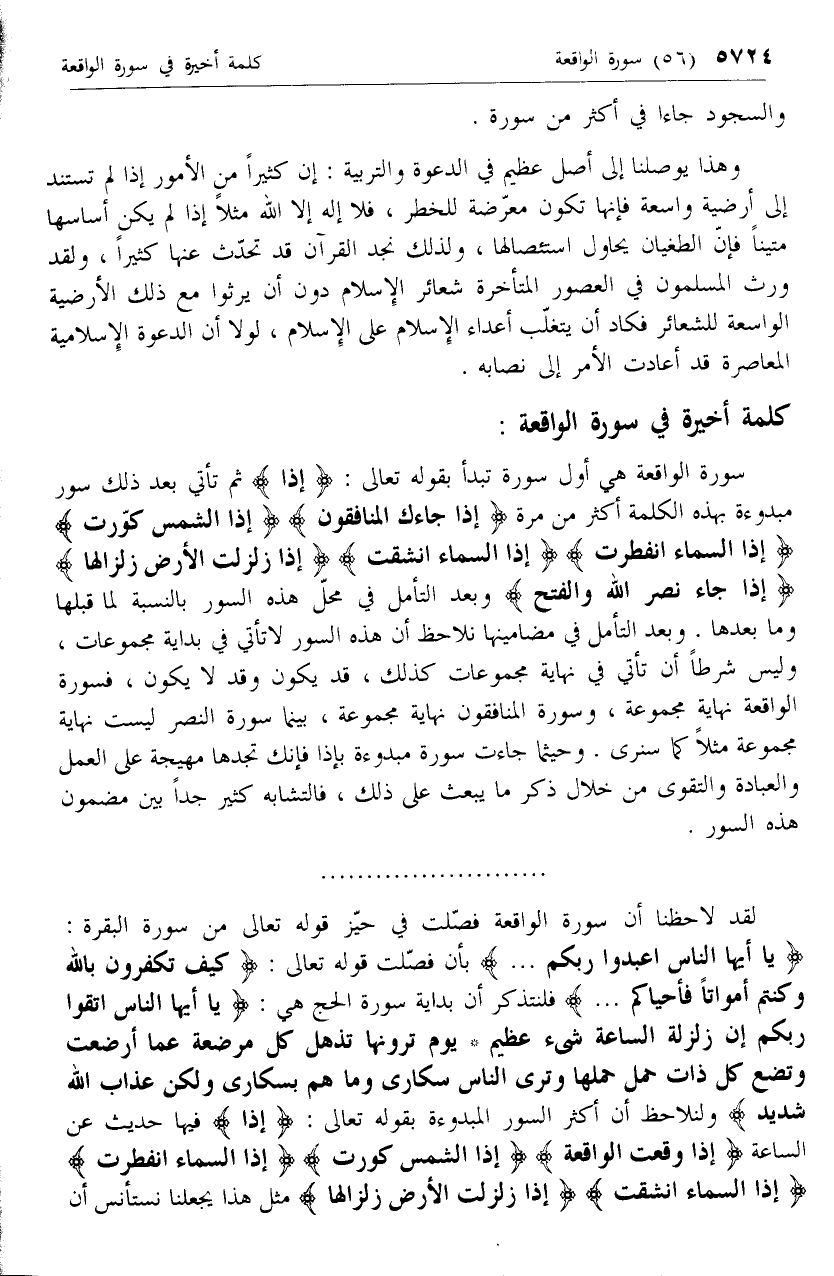 ٥٧٢٤ (٥٦) سورة الواقعة كلمة أخيرة في سورة الواقعة
والسجود جاءا في أكثر من سورة .
وهذا يوصلنا إلى أصل عظيم في الدعوة والتربية : إن كثيراً من الأمور إذا لم تستند
إلى أرضية واسعة فإنها تكون معرّضة للخطر ، فلا إله إلا الله مثلاً إذا لم يكن أساسها
متيناً فإنّ الطغيان يحاول استئصالها ، ولذلك نجد القرآن قد تحدّث عنها كثيراً ، ولقد
ورث المسلمون في العصور المتأخرة شعائر الإسلام دون أن يرثوا مع ذلك الأرضية
الواسعة للشعائر فكاد أن يتغلّب أعداء الإسلام على الإسلام ، لولا أن الدعوة الإسلامية
المعاصرة قد أعادت الأمر إلى نصابه .
كلمة أخيرة في سورة الواقعة :
سورة الواقعة هي أول سورة تبدأ بقوله تعالى : ﴿ إذا ﴾ ثم تأتي بعد ذلك سور
مبدوءة بهذه الكلمة أكثر من مرة ﴿ إذا جاءك المنافقون ﴾ ﴿ إذا الشمس كوّرت ﴾
﴿ إذا السماء انفطرت ﴾ ﴿ إذا السماء انشقت ﴾ ﴿ إذا زلزلت الأرض زلزالها ﴾
﴿ إذا جاء نصر الله والفتح ﴾ وبعد التأمل في محلّ هذه السور بالنسبة لما قبلها
وما بعدها . وبعد التأمل في مضامينها نلاحظ أن هذه السور لاتأتي في بداية مجموعات ،
وليس شرطاً أن تأتي في نهاية مجموعات كذلك ، قد يكون وقد لا يكون ، فسورة
الواقعة نهاية مجموعة ، وسورة المنافقون نهاية مجموعة ، بينما سورة النصر ليست نهاية
مجموعة مثلاً كما سنرى . وحيثما جاءت سورة مبدوءة بإذا فإنك تجدها مهيجة على العمل
والعبادة والتقوى من خلال ذكر ما يبعث على ذلك ، فالتشابه كثير جداً بين مضمون
هذه السور .
.........................
لقد لاحظنا أن سورة الواقعة فصّلت في حيّز قوله تعالى من سورة البقرة :
﴿ يا أيها الناس اعبدوا ربكم ... ﴾ بأن فصّلت قوله تعالى : ﴿ كيف تكفرون بالله
وكنتم أمواتاً فأحياكم ... ﴾ فلنتذكر أن بداية سورة الحج هي : ﴿ يا أيها الناس اتقوا
ربكم إن زلزلة الساعة شيء عظيم * يوم ترونها تذهل كل مرضعة عما أرضعت
وتضع كل ذات حمل حملها وترى الناس سكارى وما هم بسكارى ولكن عذاب الله
شديد ﴾ ولنلاحظ أن أكثر السور المبدوءة بقوله تعالى : ﴿ إذا ﴾ فيها حديث عن
الساعة ﴿ إذا وقعت الواقعة ﴾ ﴿ إذا الشمس كورت ﴾ ﴿ إذا السماء انفطرت ﴾
﴿ إذا السماء انشقت ﴾ ﴿ إذا زلزلت الأرض زلزالها ﴾ مثل هذا يجعلنا نستأنس أن